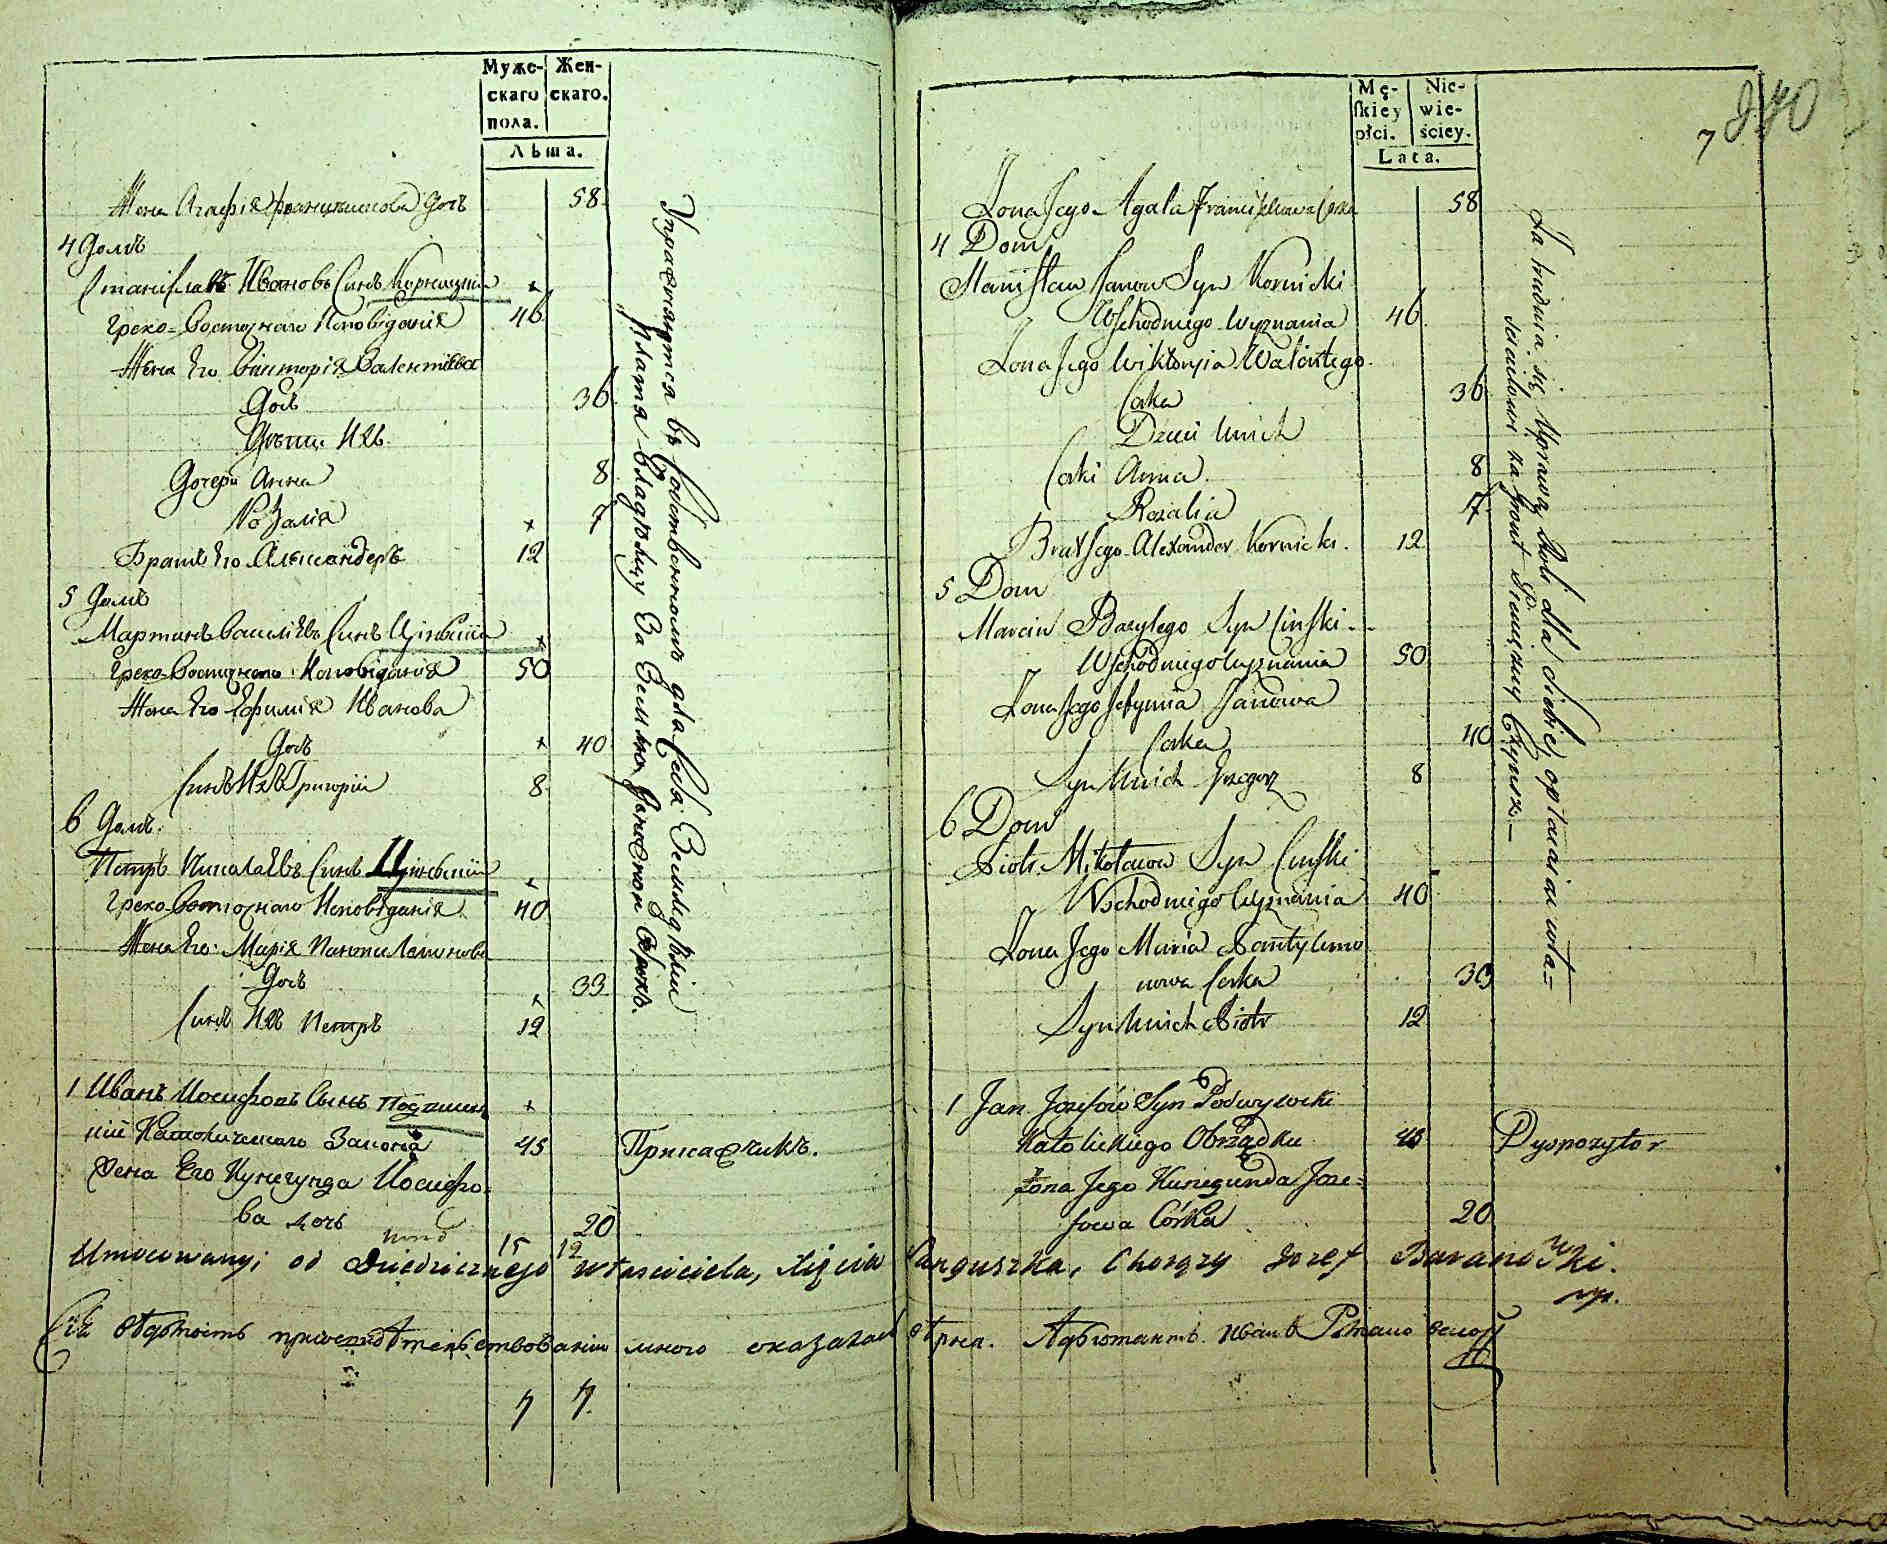 Муже-
скаго
пола.
Жен-
скаго.
Лѣта.
Жена Агафія Францишкова Дочь 58
4 Домъ
Станиславъ Ивановъ Синъ Корницкій
греко-Восточнаго Исповѣданія 46
Жена Его Викторія Валентіева
Дочь 36
Дѣти Ихъ
Дочери Анна 8
Розалія 7
Братъ Его Александеръ 12
5 Домъ
Мартинъ Василіевъ Синъ Цінскій
греко-Восточнаго Исповѣданія 50
Жена Его Ефимія Иванова
Дочь 40
Синъ Ихъ Григорій 8
6 Домъ.
Петръ Николаевъ Синъ
Греко-Восточнаго Исповѣданія 40
Жена Его Марія
Дочь 33
Синъ Ихъ Петръ 12
1 Иванъ Іосифовъ Сынъ
Католическаго Закона 45 Прикащикъ.
Жена Его Кунегунда Іосифо-
ва дочь 20
15 12
Упражняются въ Собственномъ для Себя Земледѣліи
Платя Владѣльцу За Землю Денежной Оброкъ.
Mę-
ſkiey
płci.
Nie-
wie-
ściey.
Lata.
7
840
Żona Jego Agata Franciszkowa Corka 58
4 Dom
Stanisław Janow Syn Kornicki
Wschodniego Wyznania 46
Żona Jego Wiktorya Walentego
Corka 36
Dzieci Onich
Corki Anna 8
Rozalia 7
Brat Jego Alexander Kornicki. 12
5 Dom
Marcin Bazylego Syn Cinski
Wschodniego Wyznania 50
Żona Jego Jefymia Janowa
Corka 40
Syn Onich Grzegorz 8
6 Dom
Piotr Mikołaiow Syn Cinski
Wschodniego Wyznania 40
Żona Jego Maria Pantylimo
nowa Corka 33
Syn Onich Piotr 12
1 Jan Jozefow Syn Podwysocki
Katolickiego Obrządku 45 Dyspozytor
Żona Jego Kunegunda Joze-
fowa Córka 20
Za trudnia się Uprawą Roli dla Siebie, opłacaiąc wła-
scicielowi za Gront Pieniężny Czynsz.
Umocowany od Dziedzicznego własciciela, Xięcia Sanguszka, Chorązy Jozef Baranowski.
Сія вѣдомость много оказалась вѣрна. Адъютантъ Иванъ
7 7